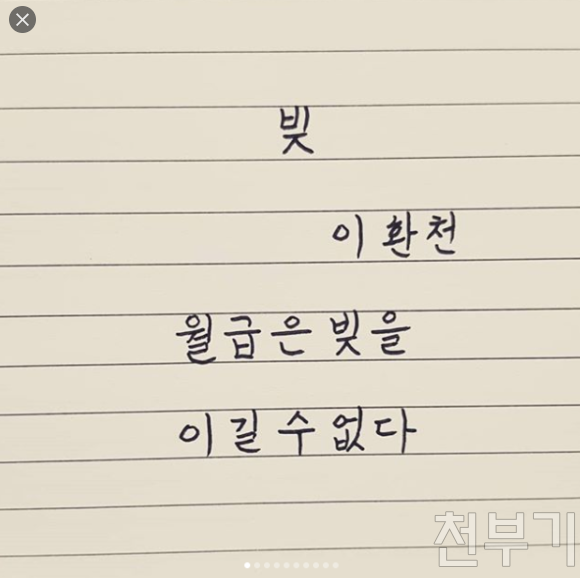 빚
이환천
월급은 빚을
이길 수 없다
천부기